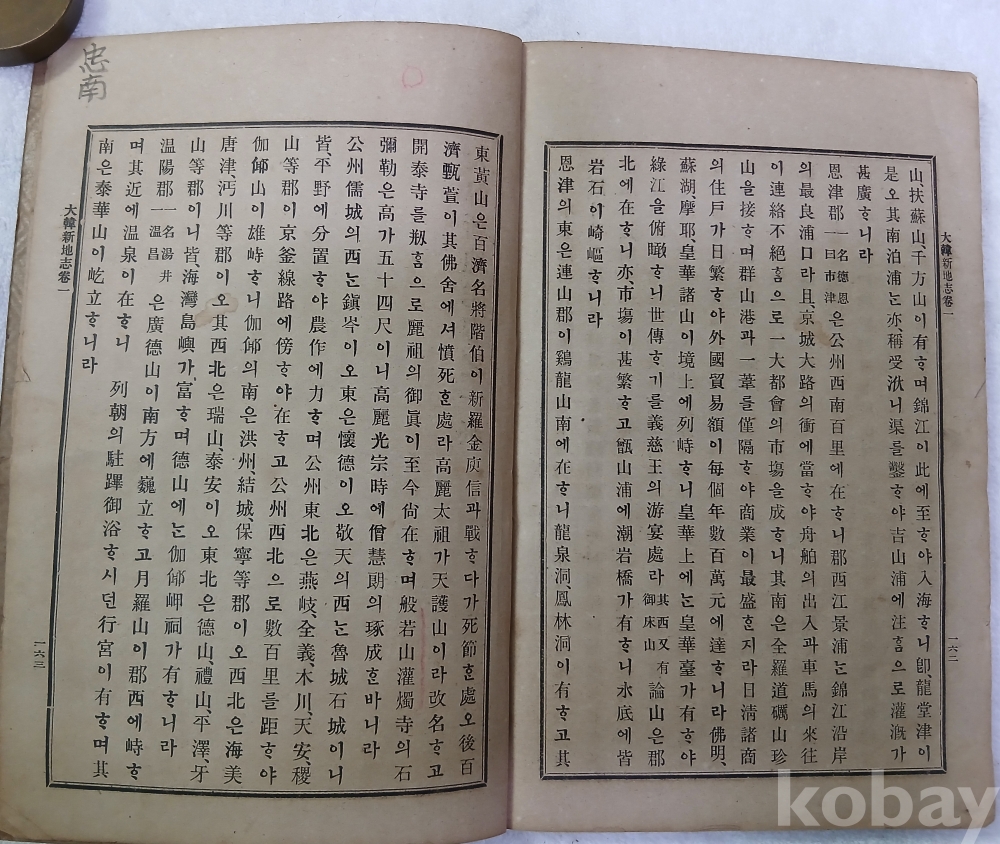 大韓新地志卷一
一六二
山扶蘇山、千方山이有ᄒᆞ며錦江이此에至ᄒᆞ야入海ᄒᆞ니卽、龍堂津이
是오其南泊浦ᄂᆞᆫ亦、稱受니渠를鑿ᄒᆞ야吉山浦에注ᄒᆞᆷ으로灌漑가
甚廣ᄒᆞ니라
恩津郡一名德恩一曰市津은公州西南百里에在ᄒᆞ니郡西江景浦ᄂᆞᆫ錦江沿岸
의最良浦口라且京城大路의衝에當ᄒᆞ야舟舶의出入과車馬의來往
이連絡不絕ᄒᆞᆷ으로一大都會의市塲을成ᄒᆞ니其南은全羅道礪山珍
山을接ᄒᆞ며群山港과一葦를僅隔ᄒᆞ야商業이最盛ᄒᆞᆫ지라日淸諸商
의住戶가日繁ᄒᆞ야外國貿易額이每個年數百萬元에達ᄒᆞ니라佛明、
蘇湖、摩耶、皇華諸山이境上에列峙ᄒᆞ니皇華上에ᄂᆞᆫ皇華臺가有ᄒᆞ야
綠江을俯瞰ᄒᆞ니世傳ᄒᆞ기를義慈王의游宴處라其西又有御床山論山은郡
北에在ᄒᆞ니亦、市塲이甚繁ᄒᆞ고甑山浦에潮岩橋가有ᄒᆞ니水底에皆
岩石이崎嶇ᄒᆞ니라
恩津의東은連山郡이鷄龍山南에在ᄒᆞ니龍泉洞、鳳林洞이有ᄒᆞ고其
忠南
東黃山은百濟名將階伯이新羅金庾信과戰ᄒᆞ다가死節ᄒᆞᆫ處오後百
濟甄萱이其佛舍에셔憤死ᄒᆞᆫ處라高麗太祖가天護山이라改名ᄒᆞ고
開泰寺를刱ᄒᆞᆷ으로麗祖의御眞이至今尙在ᄒᆞ며般若山灌燭寺의石
彌勒은高가五十四尺이니高麗光宗時에僧慧朗의琢成ᄒᆞᆫ바니라
公州儒城의西ᄂᆞᆫ鎭岑이오東은懷德이오敬天의西ᄂᆞᆫ魯城石城이니
皆、平野에分置ᄒᆞ야農作에力ᄒᆞ며公州東北은燕岐、全義、木川、天安、稷
山等郡이京釜線路에傍ᄒᆞ야在ᄒᆞ고公州西北으로數百里를距ᄒᆞ야
伽倻山이雄峙ᄒᆞ니伽倻의南은洪州、結城、保寧等郡이오西北은海美
唐津、沔川等郡이오其西北은瑞山泰安이오東北은德山、禮山、平澤、牙
山等郡이니皆海灣島嶼가富ᄒᆞ며德山에ᄂᆞᆫ伽倻岬祠가有ᄒᆞ니라
温陽郡一名湯井一温昌은廣德山이南方에巍立ᄒᆞ고月羅山이郡西에峙ᄒᆞ
며其近에温泉이在ᄒᆞ니 列朝의駐蹕御浴ᄒᆞ시던行宮이有ᄒᆞ며其
南은泰華山이屹立ᄒᆞ니라
大韓新地志卷一
一六三
kobay